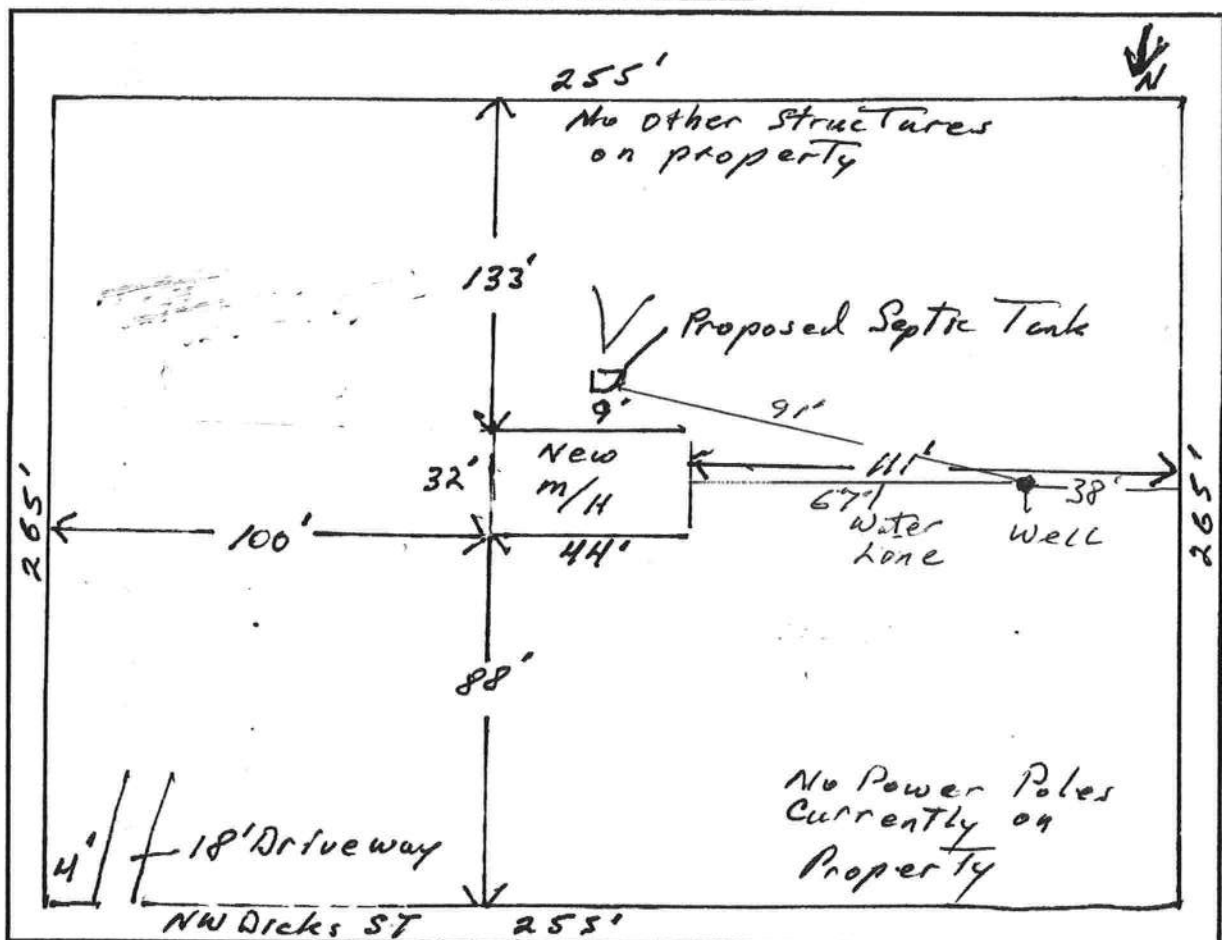 N
255'
No other Structures
on property
133'
Proposed Septic Tank
9'
91'
New
m/H
32'
111'
67'
38'
Water
Lone
Well
265'
265'
100'
44'
88'
No Power Poles
Currently on
Property
4'
18' Driveway
NW Dicks ST
255'